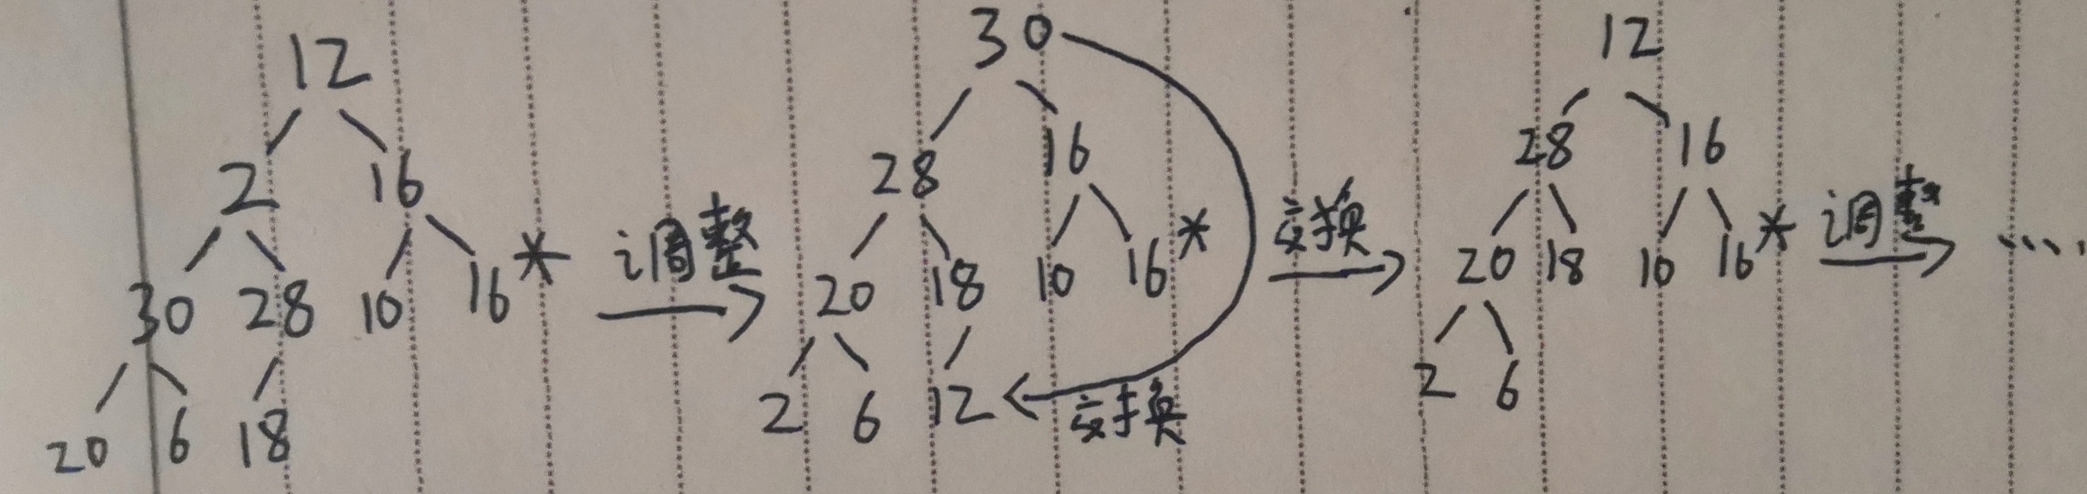 12
2 16
30 28 10 16*
20 6 18
调整
30
28 16
20 18 10 16*
2 6 12
交换
交换
12
28 16
20 18 10 16*
2 6
调整
....